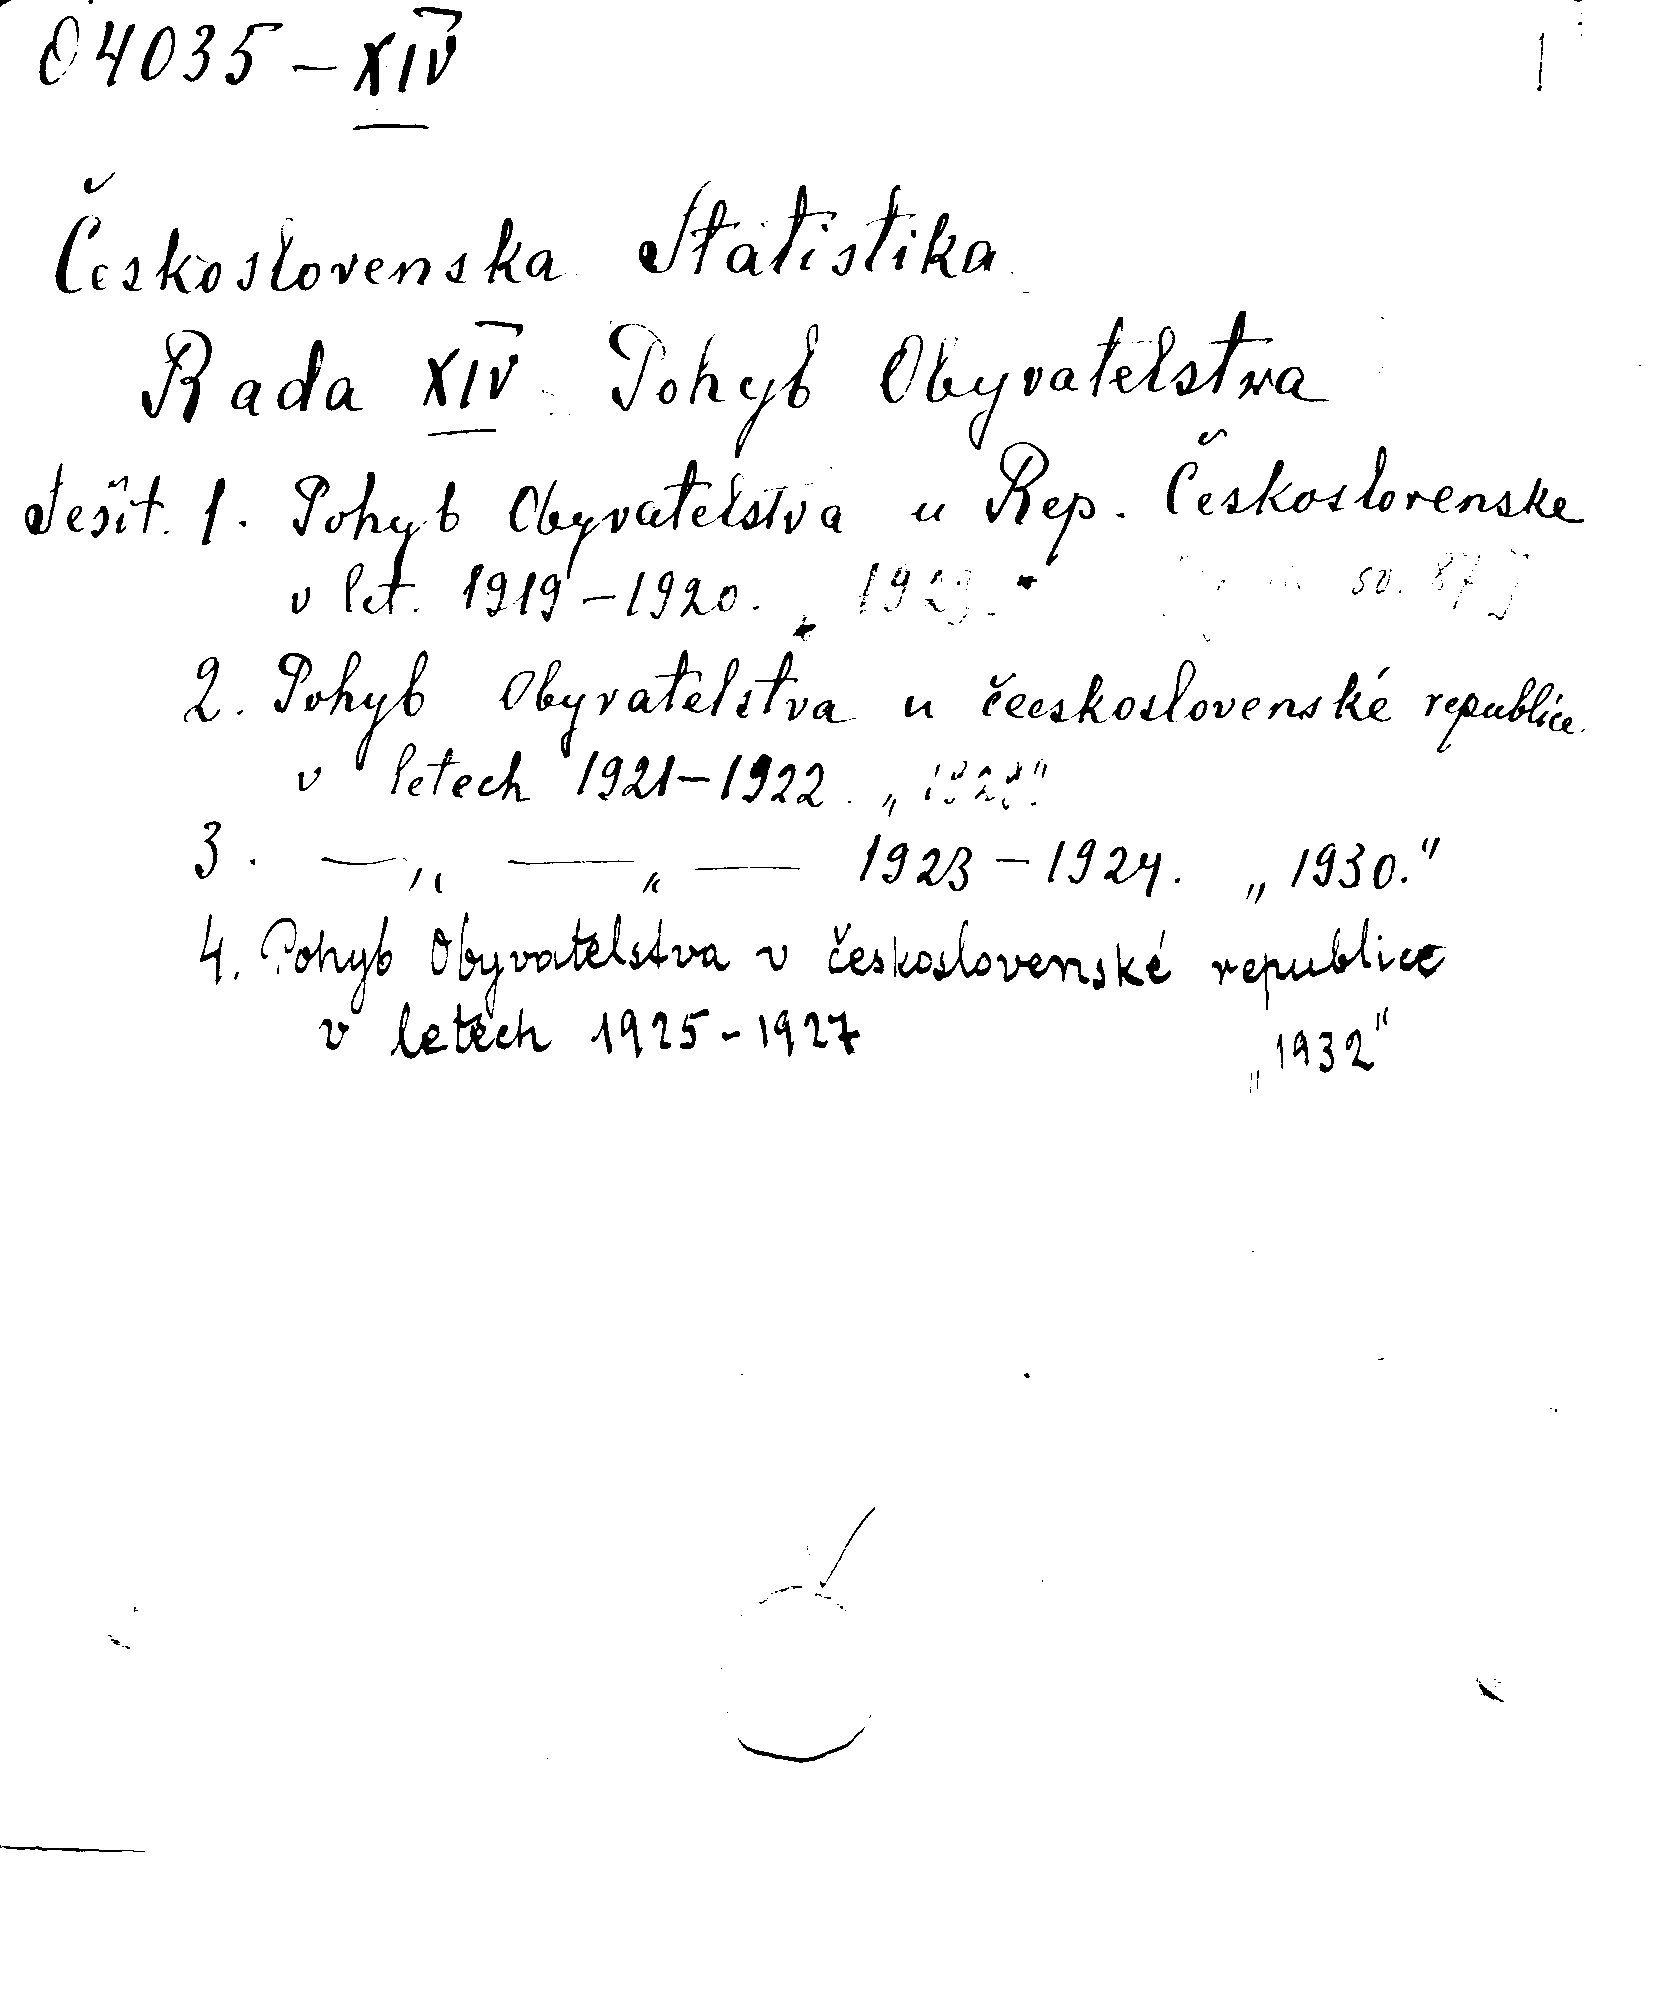 04035 – XIV
Československa Statistika
Rada XIV Pohyb Obyvatelstva
Sešit. 1. Pohyb Obyvatelstva u Rep. Československe
v let. 1919–1920. 50. 87]
2. Pohyb Obyvatelstva u čeeskoslovenské republice.
v letech 1921–1922. „192
3. —„ —„— 1923–1924. „1930."
4. Pohyb Obyvatelstva v československé republice
v letech 1925-1927 „1932"